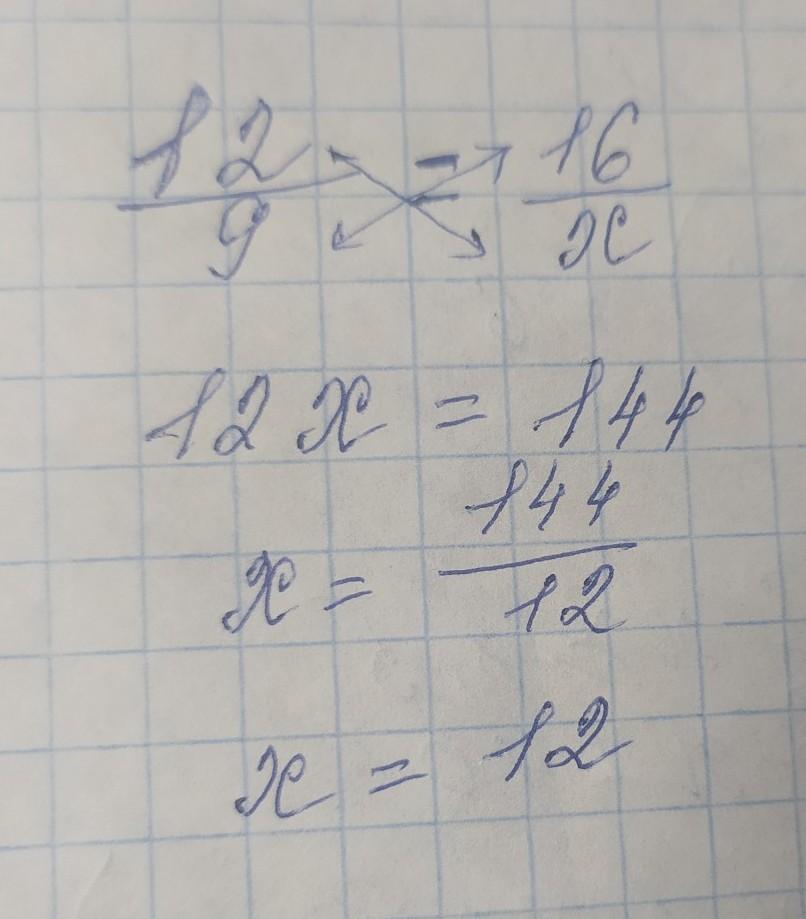 12/9 = 16/x
12x = 144
x = 144/12
x = 12